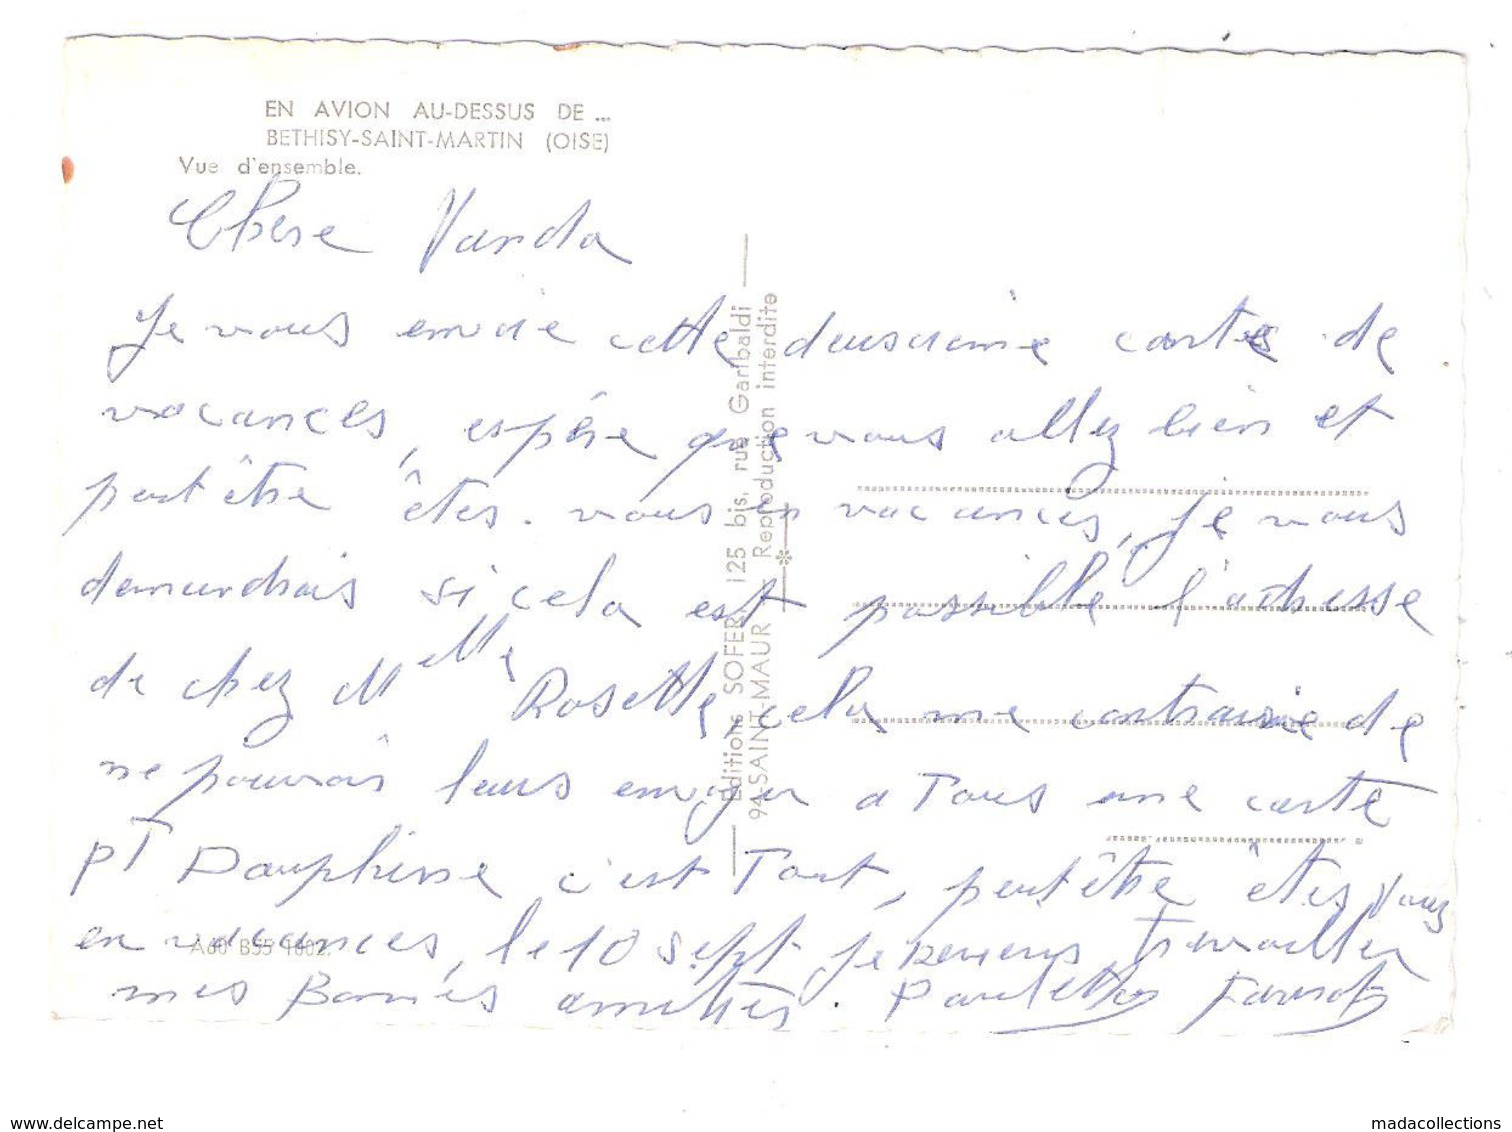 EN AVION AU-DESSUS DE ...
BETHISY-SAINT-MARTIN (OISE)
Vue d'ensemble.
Chère Vanda
Je vous envoie cette deuxième carte de
vacances, espère que vous allez bien et
peut être êtes-vous en vacances, Je vous
demandrais si cela est possible l'adresse
de chez Melle Rosette, cela me contrarie de
ne pouvoir leurs envoyer a Tous une carte
pt Dauphine c'est Tout, peut être êtes Vous
en vacances, le 10 sept. je reviens travailler
mes Bonnes amitiés. Paulette
Editions SOFER, 125 bis, rue Garibaldi
94-SAINT-MAUR Reproduction interdite
A60 B55 1002.
www.delcampe.net
madacollections